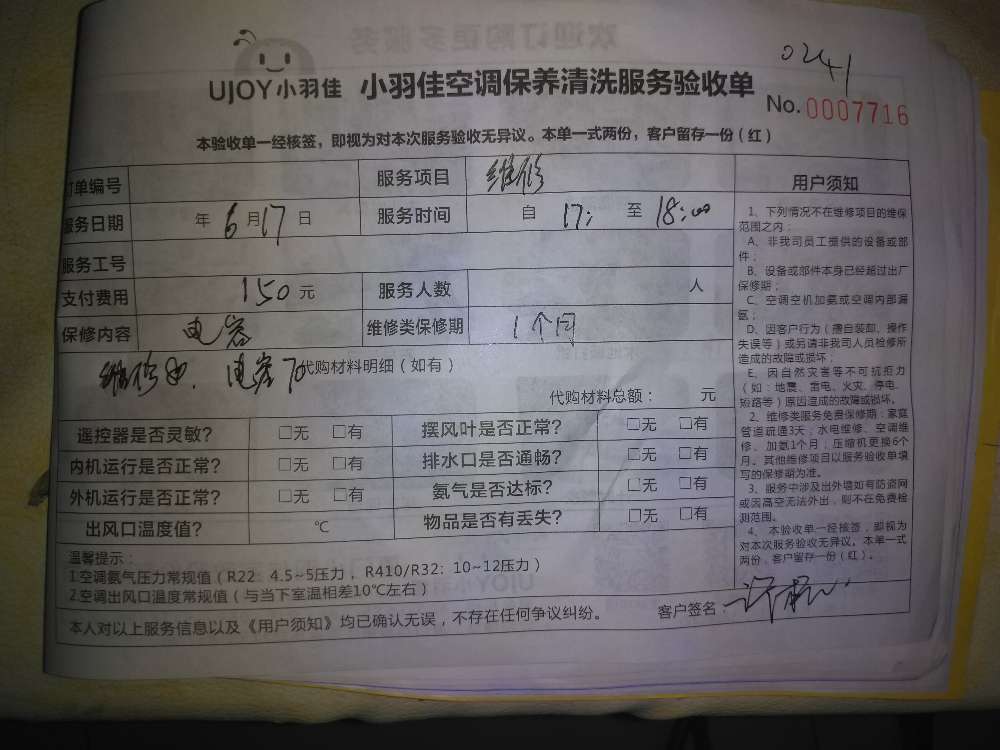 0241
UJOY小羽佳 小羽佳空调保养清洗服务验收单
No. 0007716
本验收单一经核签，即视为对本次服务验收无异议。本单一式两份，客户留存一份（红）
订单编号 服务项目 维修
服务日期 年 6 月 17 日 服务时间 自 17: 至 18:00
服务工号
支付费用 150 元 服务人数 人
保修内容 电容 维修类保修期 1个月
维修 电容 70 代购材料明细（如有）
代购材料总额： 元
遥控器是否灵敏? □无 □有 摆风叶是否正常? □无 □有
内机运行是否正常? □无 □有 排水口是否通畅? □无 □有
外机运行是否正常? □无 □有 氨气是否达标? □无 □有
出风口温度值? ℃ 物品是否有丢失? □无 □有
温馨提示：
1.空调氨气压力常规值（R22：4.5~5压力，R410/R32：10~12压力）
2.空调出风口温度常规值（与当下室温相差10℃左右）
本人对以上服务信息以及《用户须知》均已确认无误，不存在任何争议纠纷。 客户签名：
用户须知
1、下列情况不在维修项目的维保
范围之内：
A、非我司员工提供的设备或部
件；
B、设备或部件本身已经超过出厂
保修期；
C、空调空机加氨或空调内部漏
氨；
D、因客户行为（擅自装卸、操作
失误等）或另请非我司人员检修所
造成的故障或损坏；
E、因自然灾害等不可抗拒力
（如：地震、雷电、火灾、停电、
短路等）原因造成的故障或损坏。
2、维修类服务免费保修期：家庭
管道疏通3天；水电维修、空调维
修、加氨1个月；压缩机更换6个
月。其他维修项目以服务验收单填
写的保修期为准。
3、服务中涉及出外墙如有防盗网
或因高空无法外出，则不在免费检
测范围。
4、本验收单一经核签，即视为
对本次服务验收无异议。本单一式
两份，客户留存一份（红）。